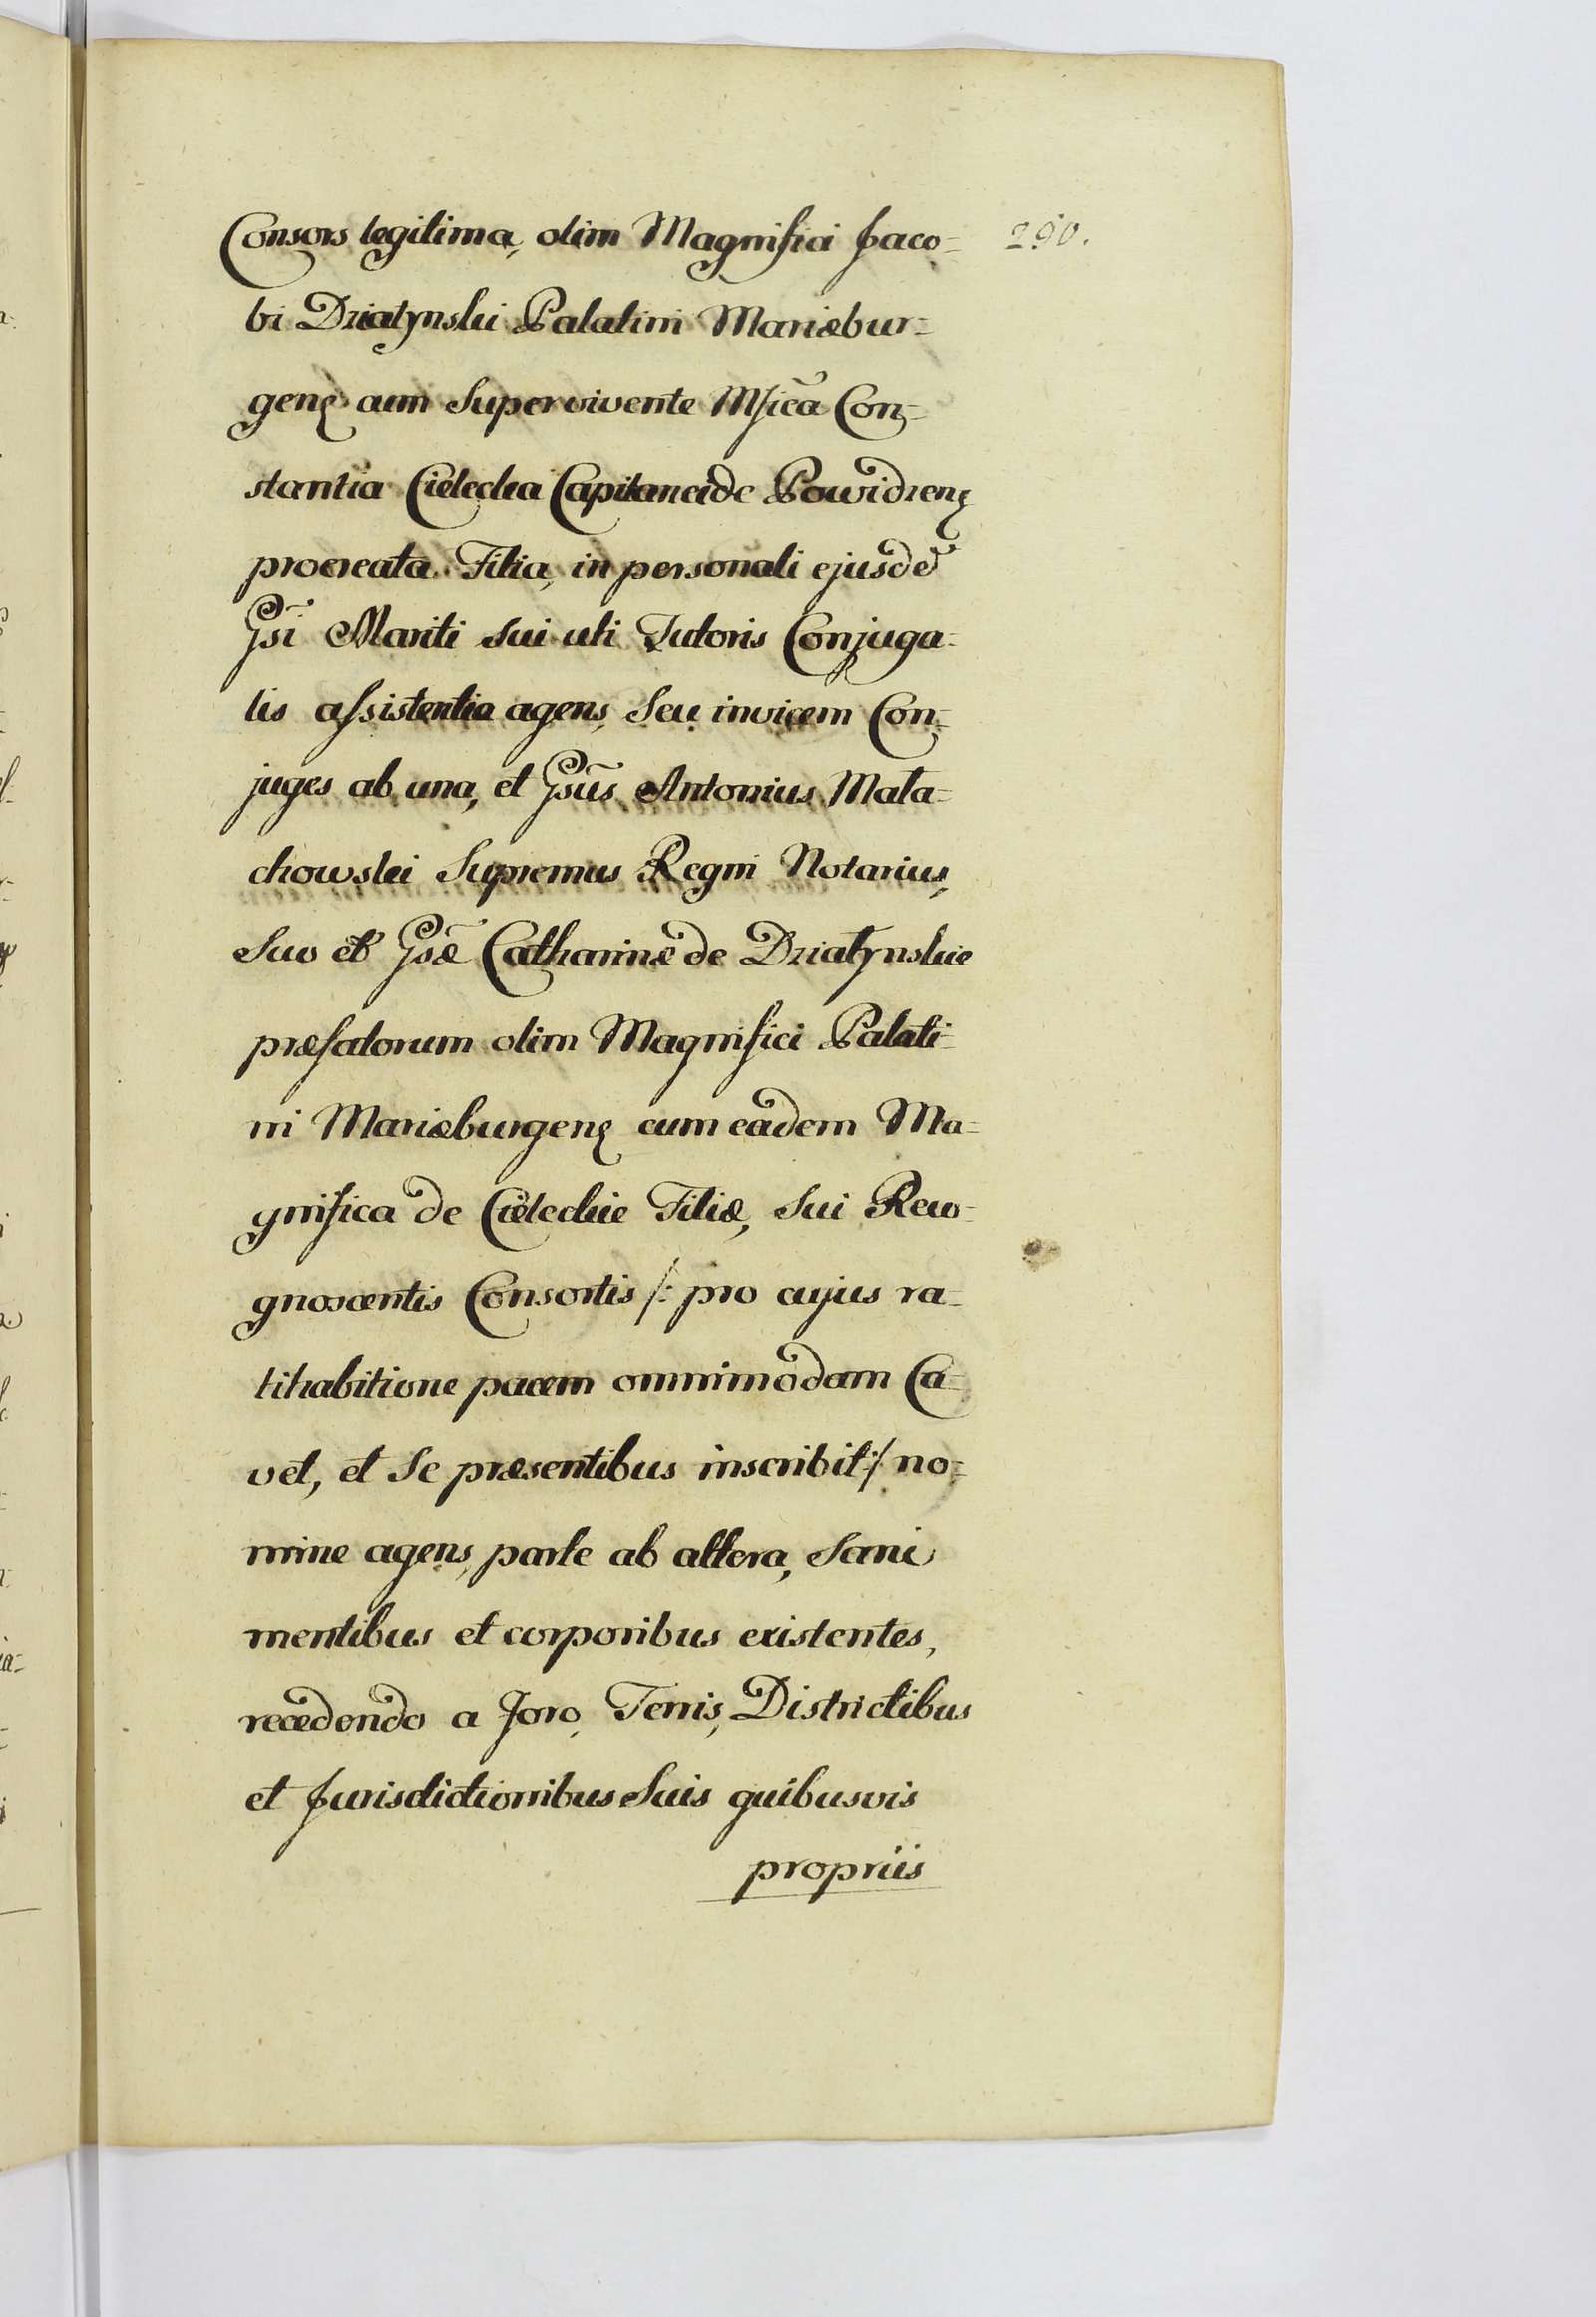 Consors legitima, olim Magnifici Jaco= 290.
bi Dziatynski Palatini Mariæbur=
genς cum Supervivente Mficã Con=
stantia Cielecka Capitaneide Powidzenς
procreata Filia, in personali ejusdẽ
Gsi Mariti sui uti Tutoris Conjuga=
lis assistentia agens, seu invicem Con=
juges ab una, et Gsus Antonius Mała=
chowski Supremus Regni Notarius,
Suo et Gsæ Catharinæ de Działynskie
præfatorum olim Magnifici Palati=
ni Mariæburgenς cum eadem Ma=
gnifica de Cieleckie Filiæ, sui Reco=
gnoscentis Consortis /: pro cujus ra=
tihabitione pacem omnimodam Ca=
vet, et Se præsentibus inscribit :/ no=
mine agens, parte ab altera, Sani
mentibus et corporibus existentes,
recedendo a Foro, Terris, Districtibus
et Jurisdictionibus Suis quibusvis
propriis